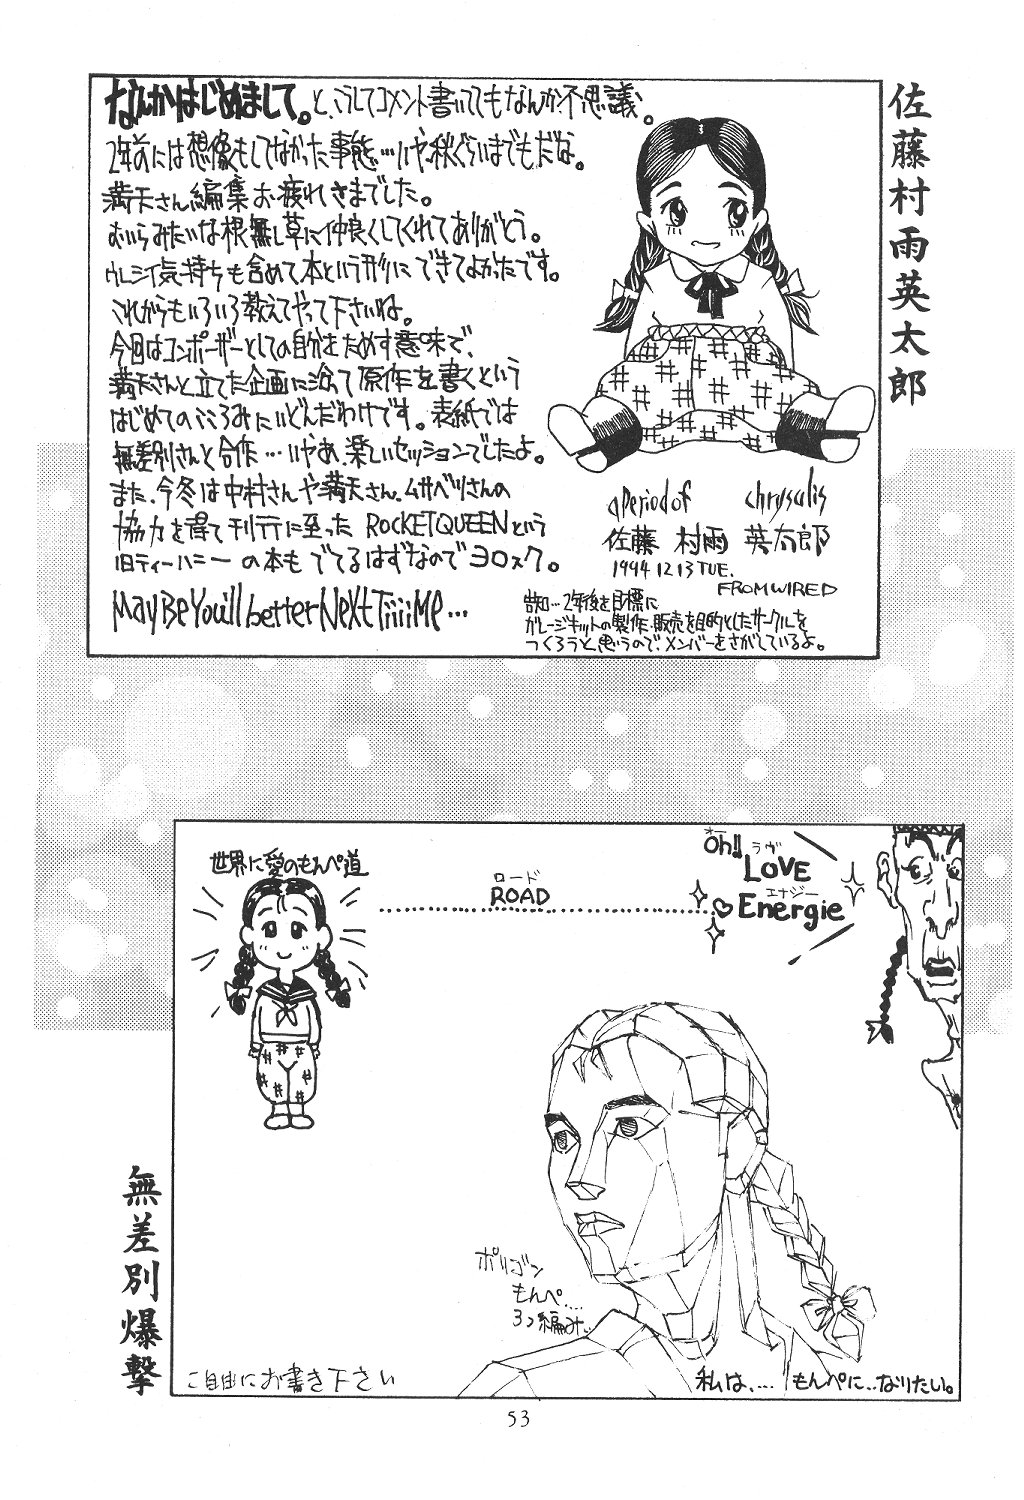 佐藤村雨英太郎
なんかはじめまして。と、こうしてコメント書いてもなんか不思議。
2年前には想像もしてなかった事態…いや、秋ぐらいまでもだな。
満天さん編集お疲れさまでした。
おいらみたいな根無し草に仲良くしてくれてありがとう。
ウレシイ気持ちも含めて本という形にできてよかったです。
これからもいろいろ教えてやって下さいね。
今回はコンポーザーとしての自分をためす意味で、
満天さんと立てた企画に沿って原作を書くという
はじめてのこころみたいどんだわけです。表紙では
無差別さんと合作…いやあ、楽しいセッションでしたよ。
また、今冬は中村さんや満天さん、ムサベツさんの
協力を得て刊行に至った ROCKETQUEENという
旧ティーハニーの本もでてるはずなのでヨロスク。
MayBe You'll better NexT TiiiiMe…
aperiod of chrysalis
佐藤 村雨 英太郎
1994 12 13 TUE.
FROM WIRED
告知…2年後を目標に
ガレージキットの製作・販売を目的としたサークルを
つくろうと思うので メンバーをさがしているよ。
世界に愛のもんぺ道
ロード
ROAD
オー
Oh!!
ラヴ
LOVE
エナジー
Energie
ポリゴン
もんぺ…
3つ編み…
ご自由にお書き下さい
私は、… もんぺに…なりたい。
無差別爆撃
53